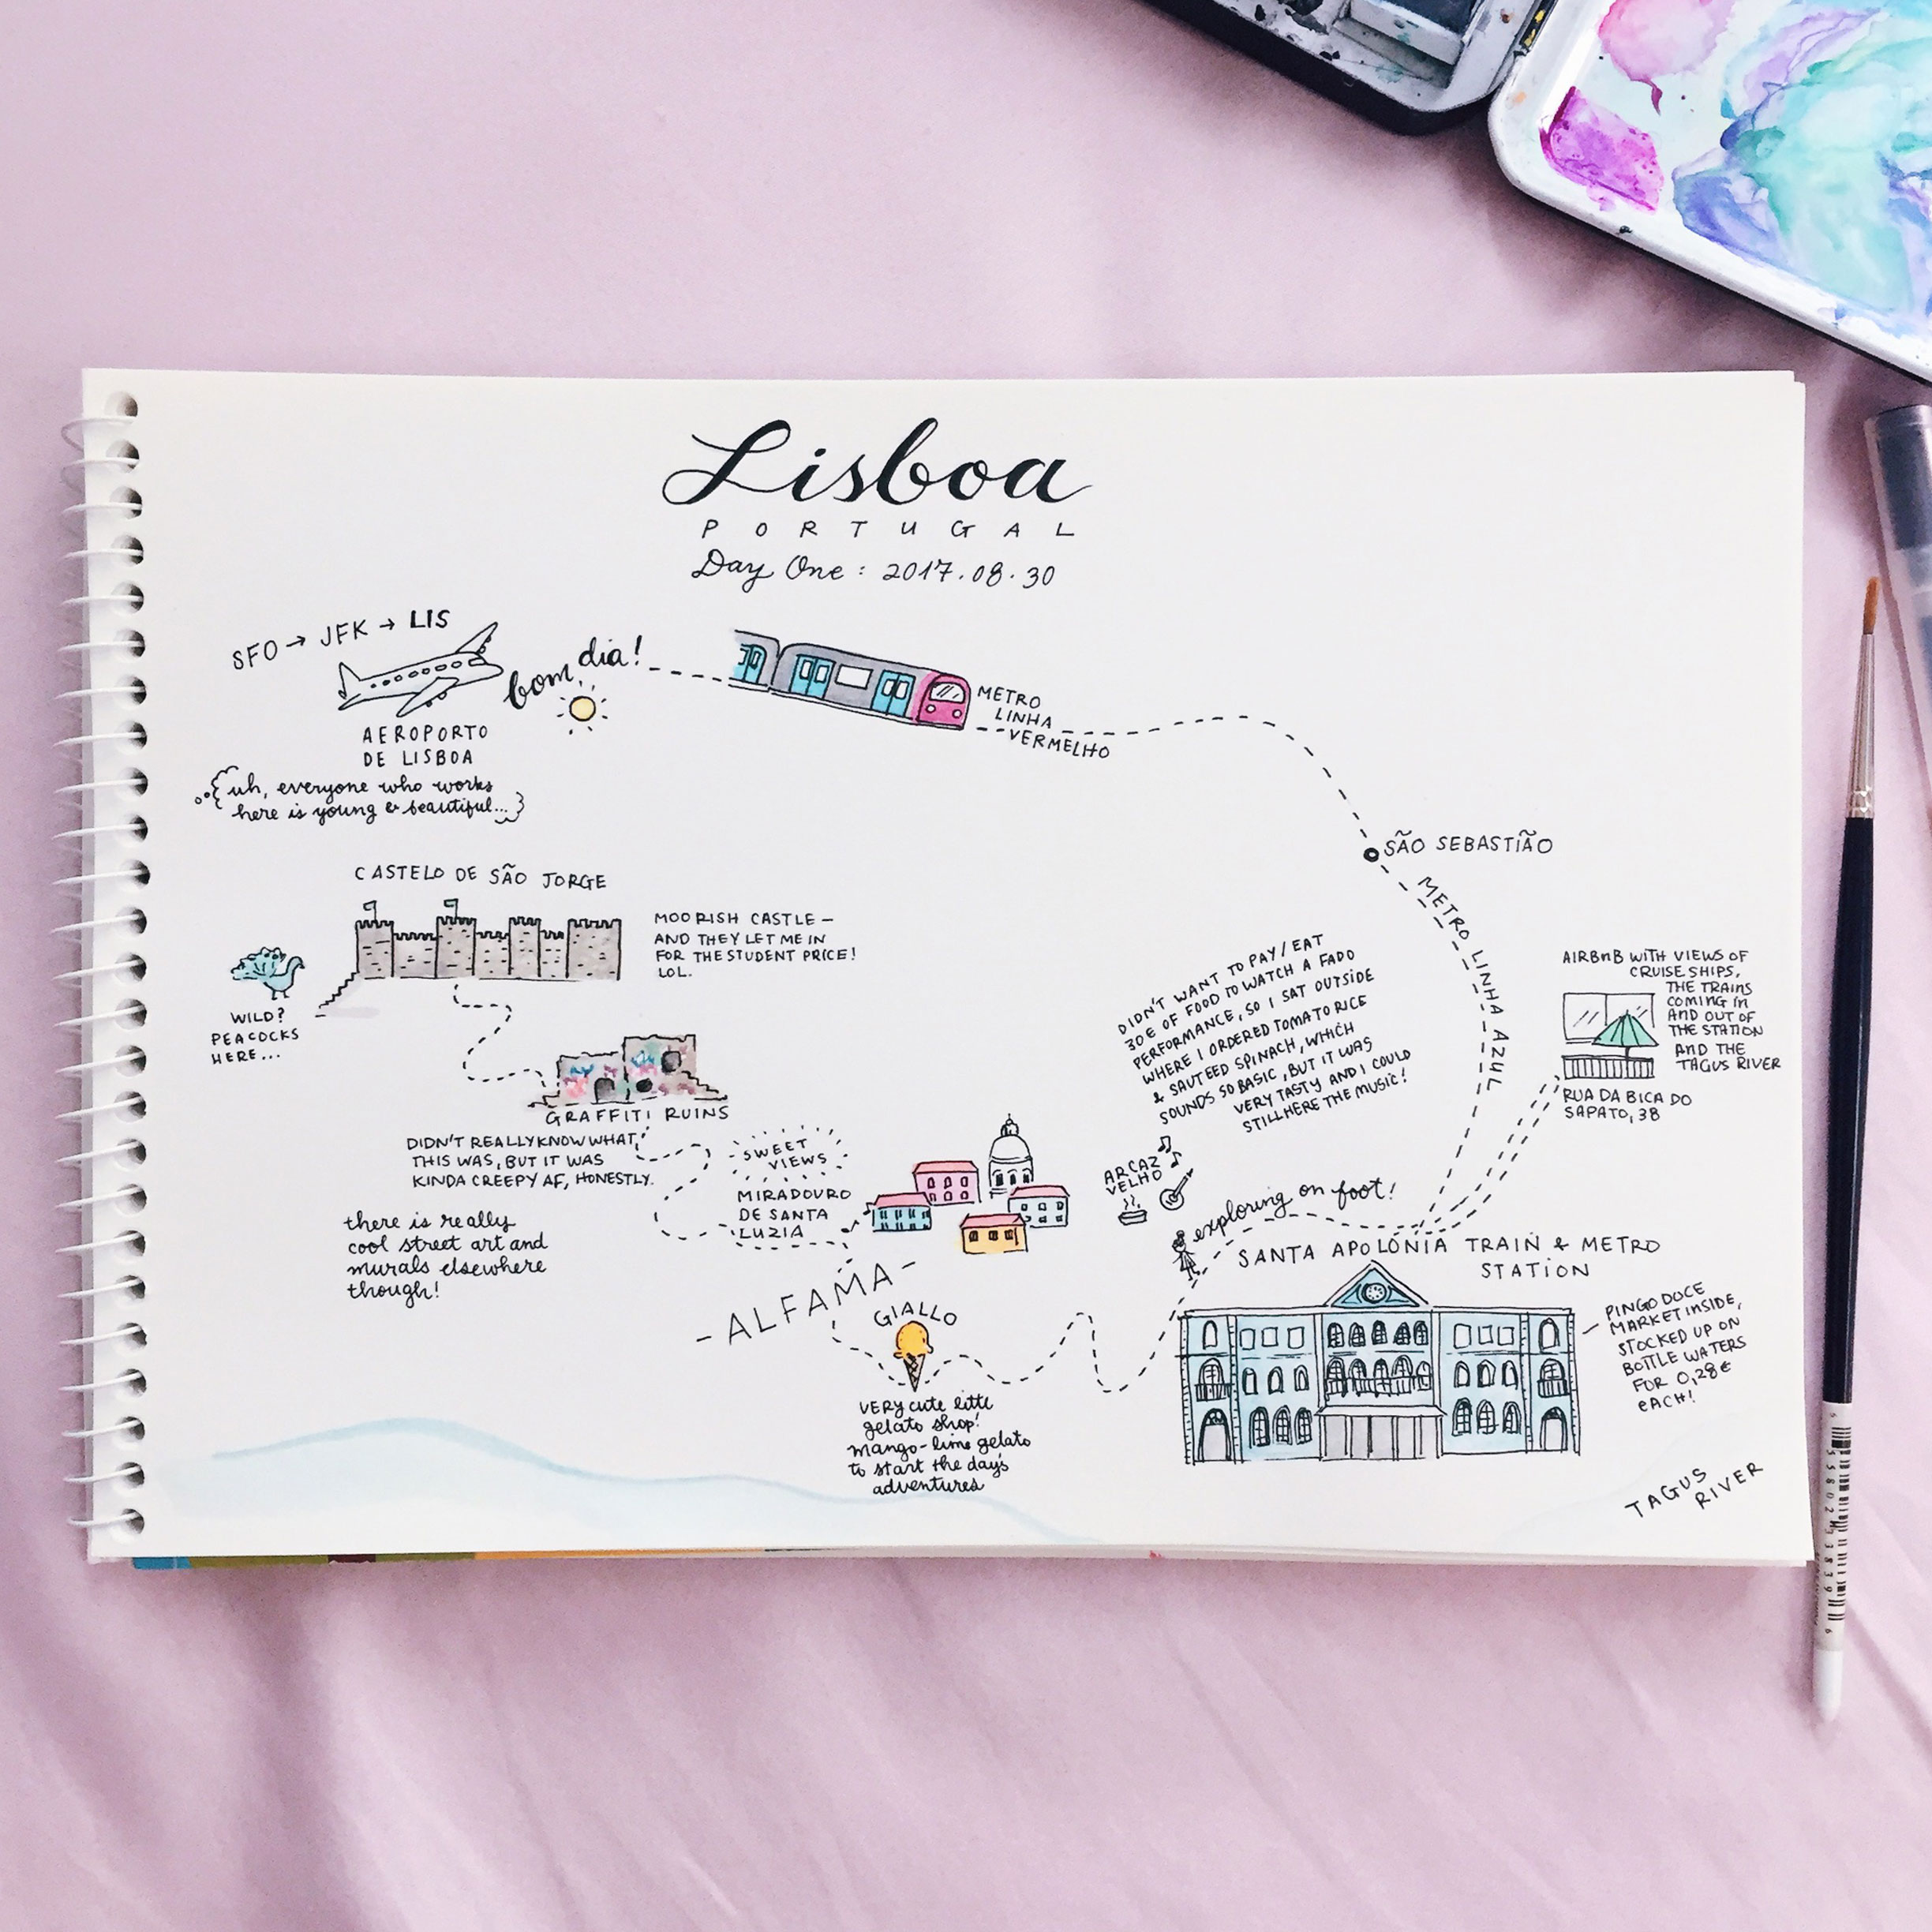 Lisboa
PORTUGAL
Day One : 2017.08.30
SFO → JFK → LIS
bom dia!
AEROPORTO
DE LISBOA
uh, everyone who works
here is young & beautiful...
METRO
LINHA
VERMELHO
SÃO SEBASTIÃO
METRO LINHA AZUL
CASTELO DE SÃO JORGE
MOORISH CASTLE –
AND THEY LET ME IN
FOR THE STUDENT PRICE!
LOL.
WILD?
PEACOCKS
HERE...
GRAFFITI RUINS
DIDN'T REALLY KNOW WHAT
THIS WAS, BUT IT WAS
KINDA CREEPY AF, HONESTLY.
there is really
cool street art and
murals elsewhere
though!
SWEET
VIEWS
MIRADOURO
DE SANTA
LUZIA
- ALFAMA -
GIALLO
VERY cute little
gelato shop!
mango-lime gelato
to start the day's
adventures
DIDN'T WANT TO PAY/EAT
30€ OF FOOD TO WATCH A FADO
PERFORMANCE, SO I SAT OUTSIDE
WHERE I ORDERED TOMATO RICE
& SAUTEED SPINACH, WHICH
SOUNDS SO BASIC, BUT IT WAS
VERY TASTY AND I COULD
STILL HERE THE MUSIC!
ARCAZ
VELHO
exploring on foot!
AIRBNB WITH VIEWS OF
CRUISE SHIPS,
THE TRAINS
COMING IN
AND OUT OF
THE STATION
AND THE
TAGUS RIVER
RUA DA BICA DO
SAPATO, 38
SANTA APOLÓNIA TRAIN & METRO
STATION
PINGO DOCE
MARKET INSIDE,
STOCKED UP ON
BOTTLE WATERS
FOR 0,28€
EACH!
TAGUS
RIVER